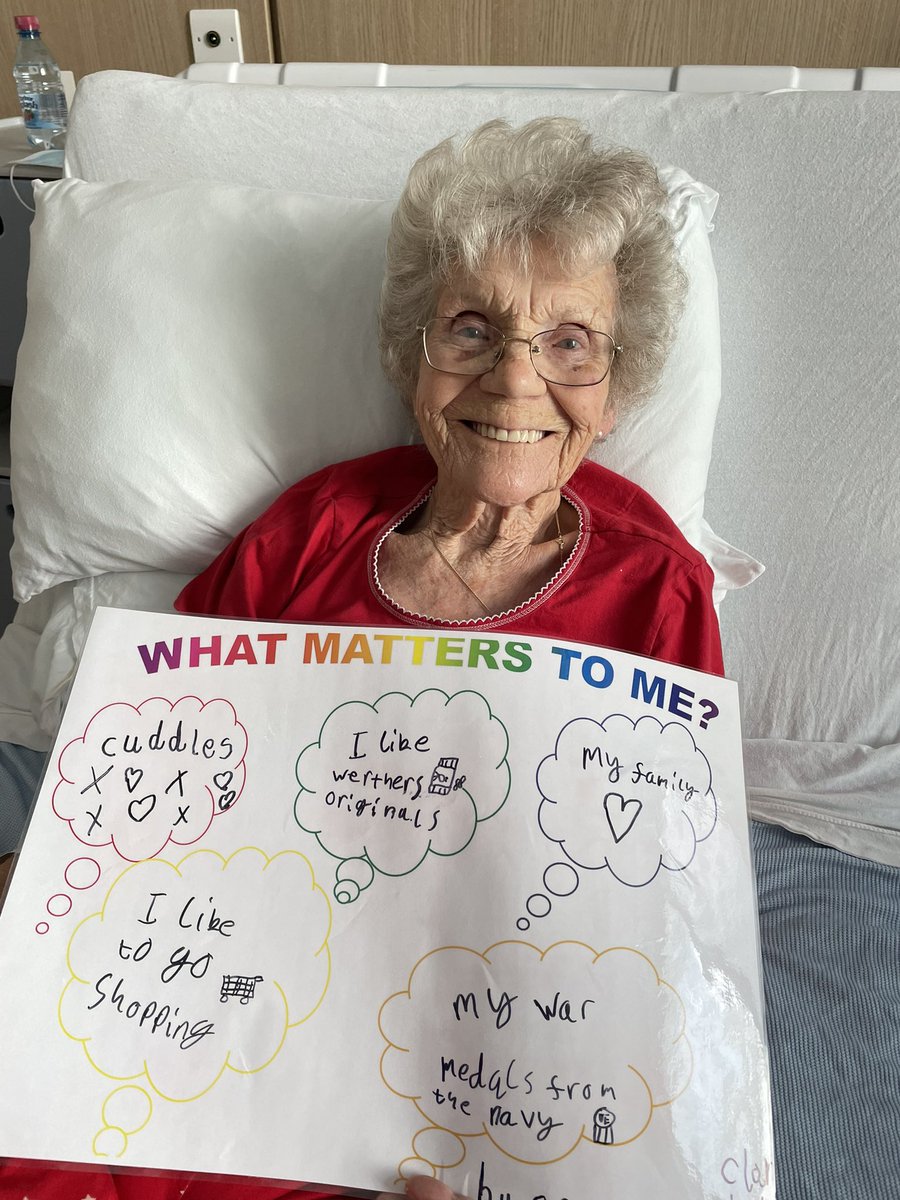 WHAT MATTERS TO ME?
cuddles
I like
werthers
originals
My family
I like
to go
shopping
my war
medals from
the navy